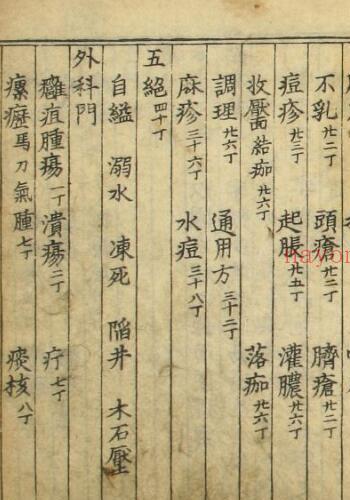 不乳廿二丁 頭瘡廿二丁 臍瘡廿二丁
痘疹廿三丁 起脹廿五丁 灌膿廿六丁
收靨結痂廿六丁 落痂廿六丁
調理廿六丁 通用方三十二丁
麻疹三十六丁 水痘三十八丁
五絕四十丁
自縊 溺水 凍死 陷井 木石壓
外科門
癰疽腫瘍一丁 潰瘍二丁 疔七丁
瘰癧馬刀氣腫七丁 痰核八丁